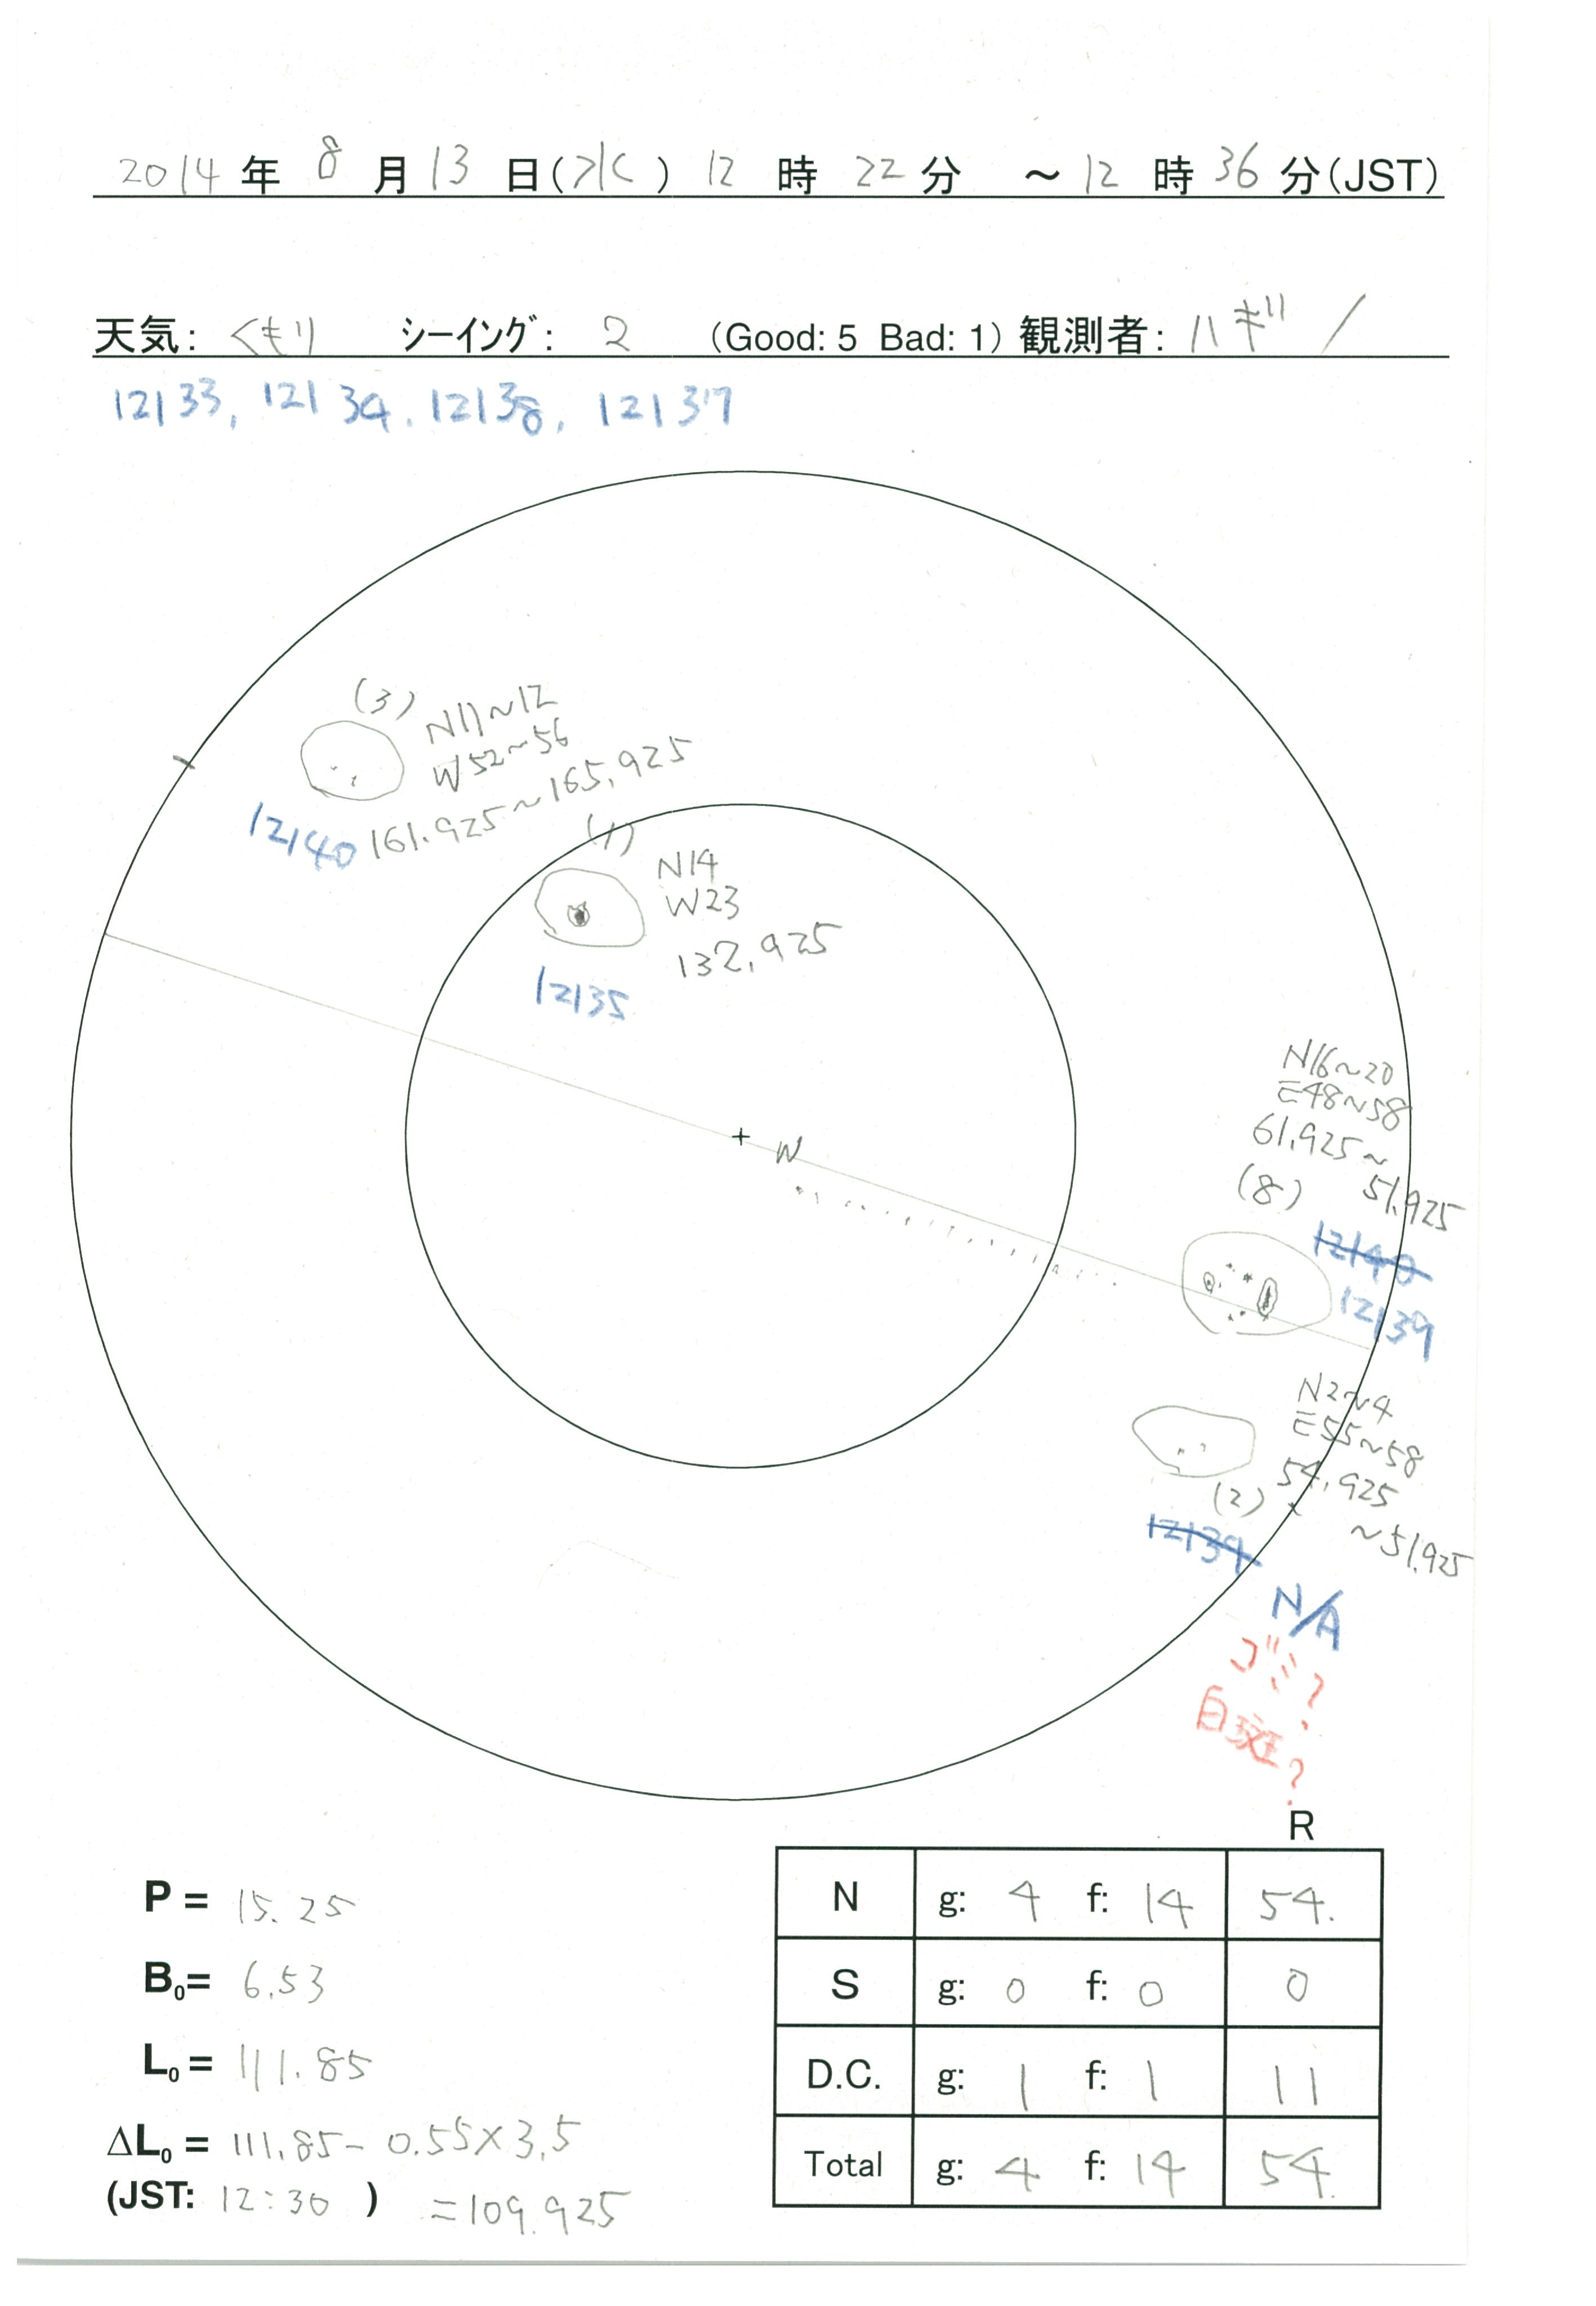 2014年 8月13日(水) 12時22分 ～12時36分(JST)
天気: くもり シーイング: 2 (Good: 5 Bad: 1) 観測者: ハギノ
12133, 12134, 12138, 12137
(3)
N11~12
W52~56
161.925~165.925
12140
(1)
N14
W23
132.925
12135
N16~20
E48~58
61.925~
51.925
(8)
12140
12139
W
N2~4
E55~58
54.925
~51.925
(2)
12139
N/A
ゴミ?
白斑?
R
N g: 4 f: 14 54.
S g: 0 f: 0 0
D.C. g: 1 f: 1 11
Total g: 4 f: 14 54.
P = 15.25
B₀= 6.53
L₀ = 111.85
ΔL₀ = 111.85- 0.55×3.5
(JST: 12:30 ) =109.925